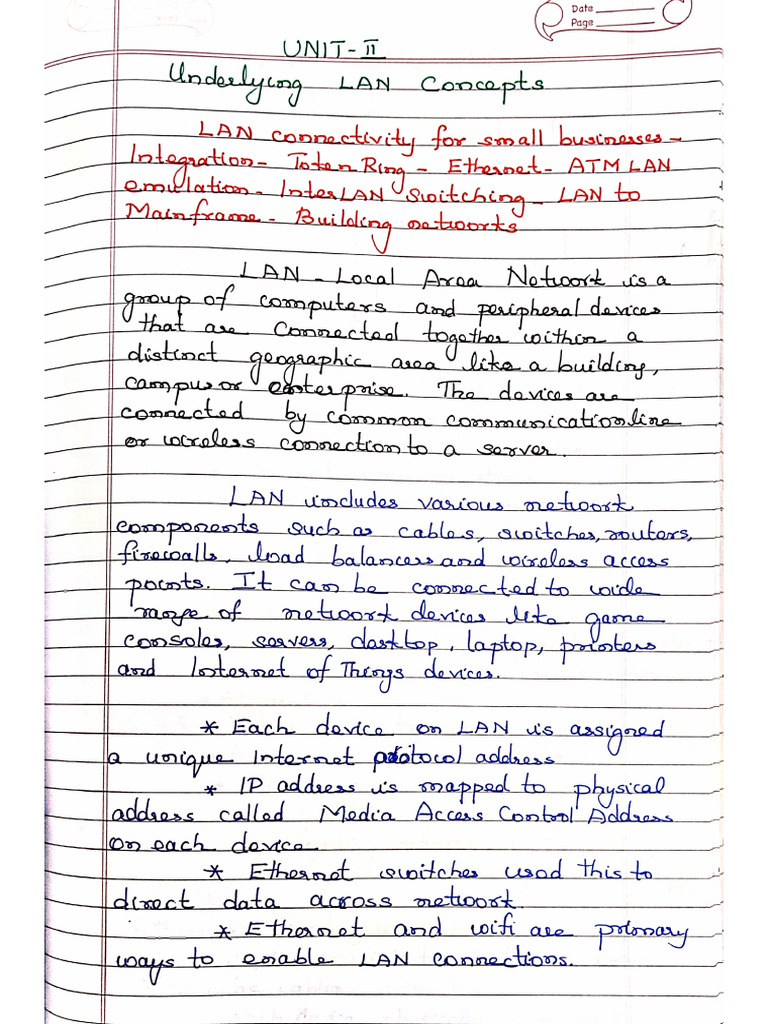 Date
Page
UNIT-II
Underlying LAN Concepts
LAN connectivity for small businesses-
Integration- Token Ring - Ethernet- ATM LAN
emulation- InterLAN Switching- LAN to
Mainframe- Building networks
LAN - Local Area Network is a
group of computers and peripheral devices
that are Connected together within a
distinct geographic area like a building,
campus or enterprise. The devices are
connected by common communication line
or wireless connection to a server.
LAN includes various network
components such as cables, switches, routers,
firewalls, load balancers and wireless access
points. It can be connected to wide
range of network devices like game
consoles, servers, desktop, laptop, printers
and Internet of Things devices.
* Each device on LAN is assigned
a unique Internet protocol address
* IP address is mapped to physical
address called Media Access Control Address
on each device
* Ethernet switches used this to
direct data across network.
* Ethernet and wifi are primary
ways to enable LAN connections.